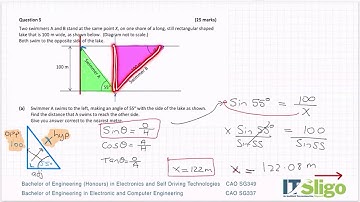 Question 5 (25 marks)
Two swimmers A and B stand at the same point X, on one shore of a long, still rectangular shaped
lake that is 100 m wide, as shown below. (Diagram not to scale.)
Both swim to the opposite side of the lake.
100 m
Swimmer A
Swimmer B
55°
X
(a) Swimmer A swims to the left, making an angle of 55° with the side of the lake as shown.
Find the distance that A swims to reach the other side.
Give you answer correct to the nearest metre.
opp
100
x
hyp
55°
adj
Sin θ = O/H
Cos θ = A/H
Tan θ = O/A
x = 122m
Sin 55° = 100/x
x Sin 55°/Sin 55° = 100/Sin 55
x = 122.08 m
Bachelor of Engineering (Honours) in Electronics and Self Driving Technologies CAO SG349
Bachelor of Engineering in Electronic and Computer Engineering CAO SG337
IT Sligo